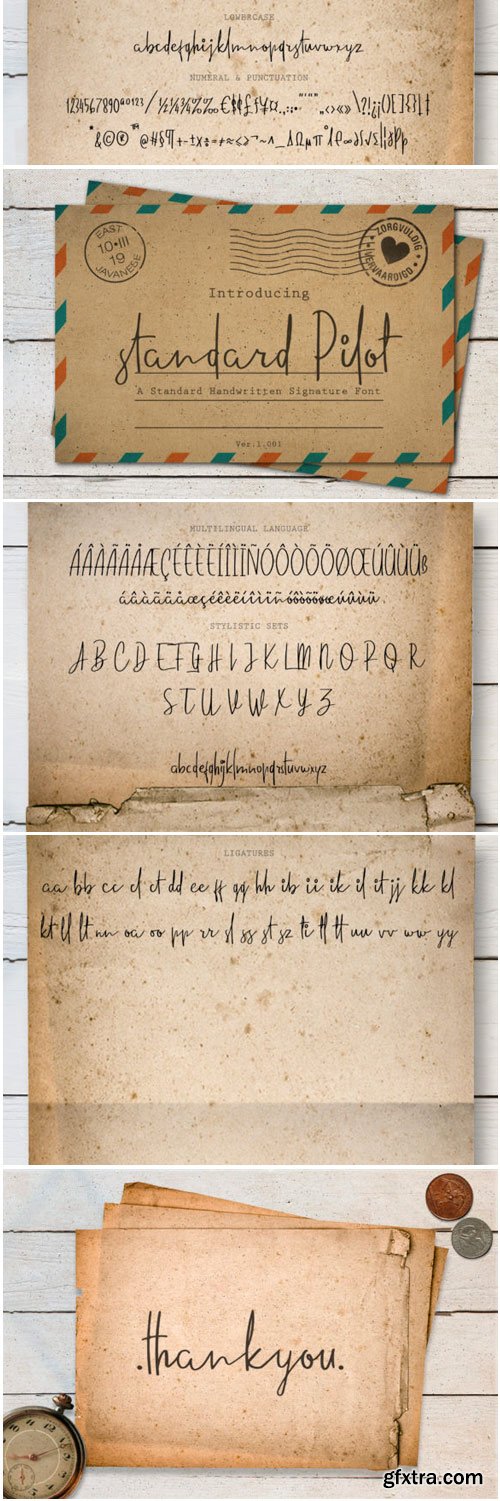 LOWERCASE
abcdefghijklmnopqrstuvwxyz
NUMERAL & PUNCTUATION
EAST
10•III
19
JAVANESE
ZORGVULDIG
VERVAARDIGD
Introducing
standard Pilot
A Standard Handwritten Signature Font
Ver.1.001
MULTILINGUAL LANGUAGE
STYLISTIC SETS
A B C D E F G H I J K L M N O P Q R
S T U V W X Y Z
abcdefghijklmnopqrstuvwxyz
LIGATURES
aa bb cc cl ct dd ee ff gg hh ib ii ik il it jj kk kl
kt ll lt nn oa oo pp rr sl ss st sz ti tl tt uu vv ww yy
.thankyou.
gfxtra.com